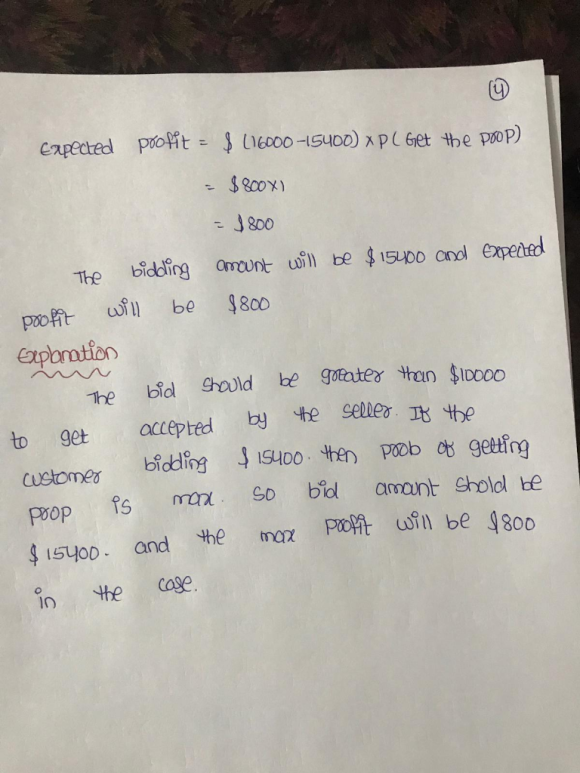 4
Expected profit = $ (16000-15400) x P( Get the prop)
= $800x1
= $800
The bidding amount will be $15400 and expected
profit will be $800
Explanation
The bid should be greater than $10000
to get accepted by the seller. If the
customer bidding $15400. then prob of getting
prop is max. so bid amount shold be
$15400. and the max profit will be $800
in the case.